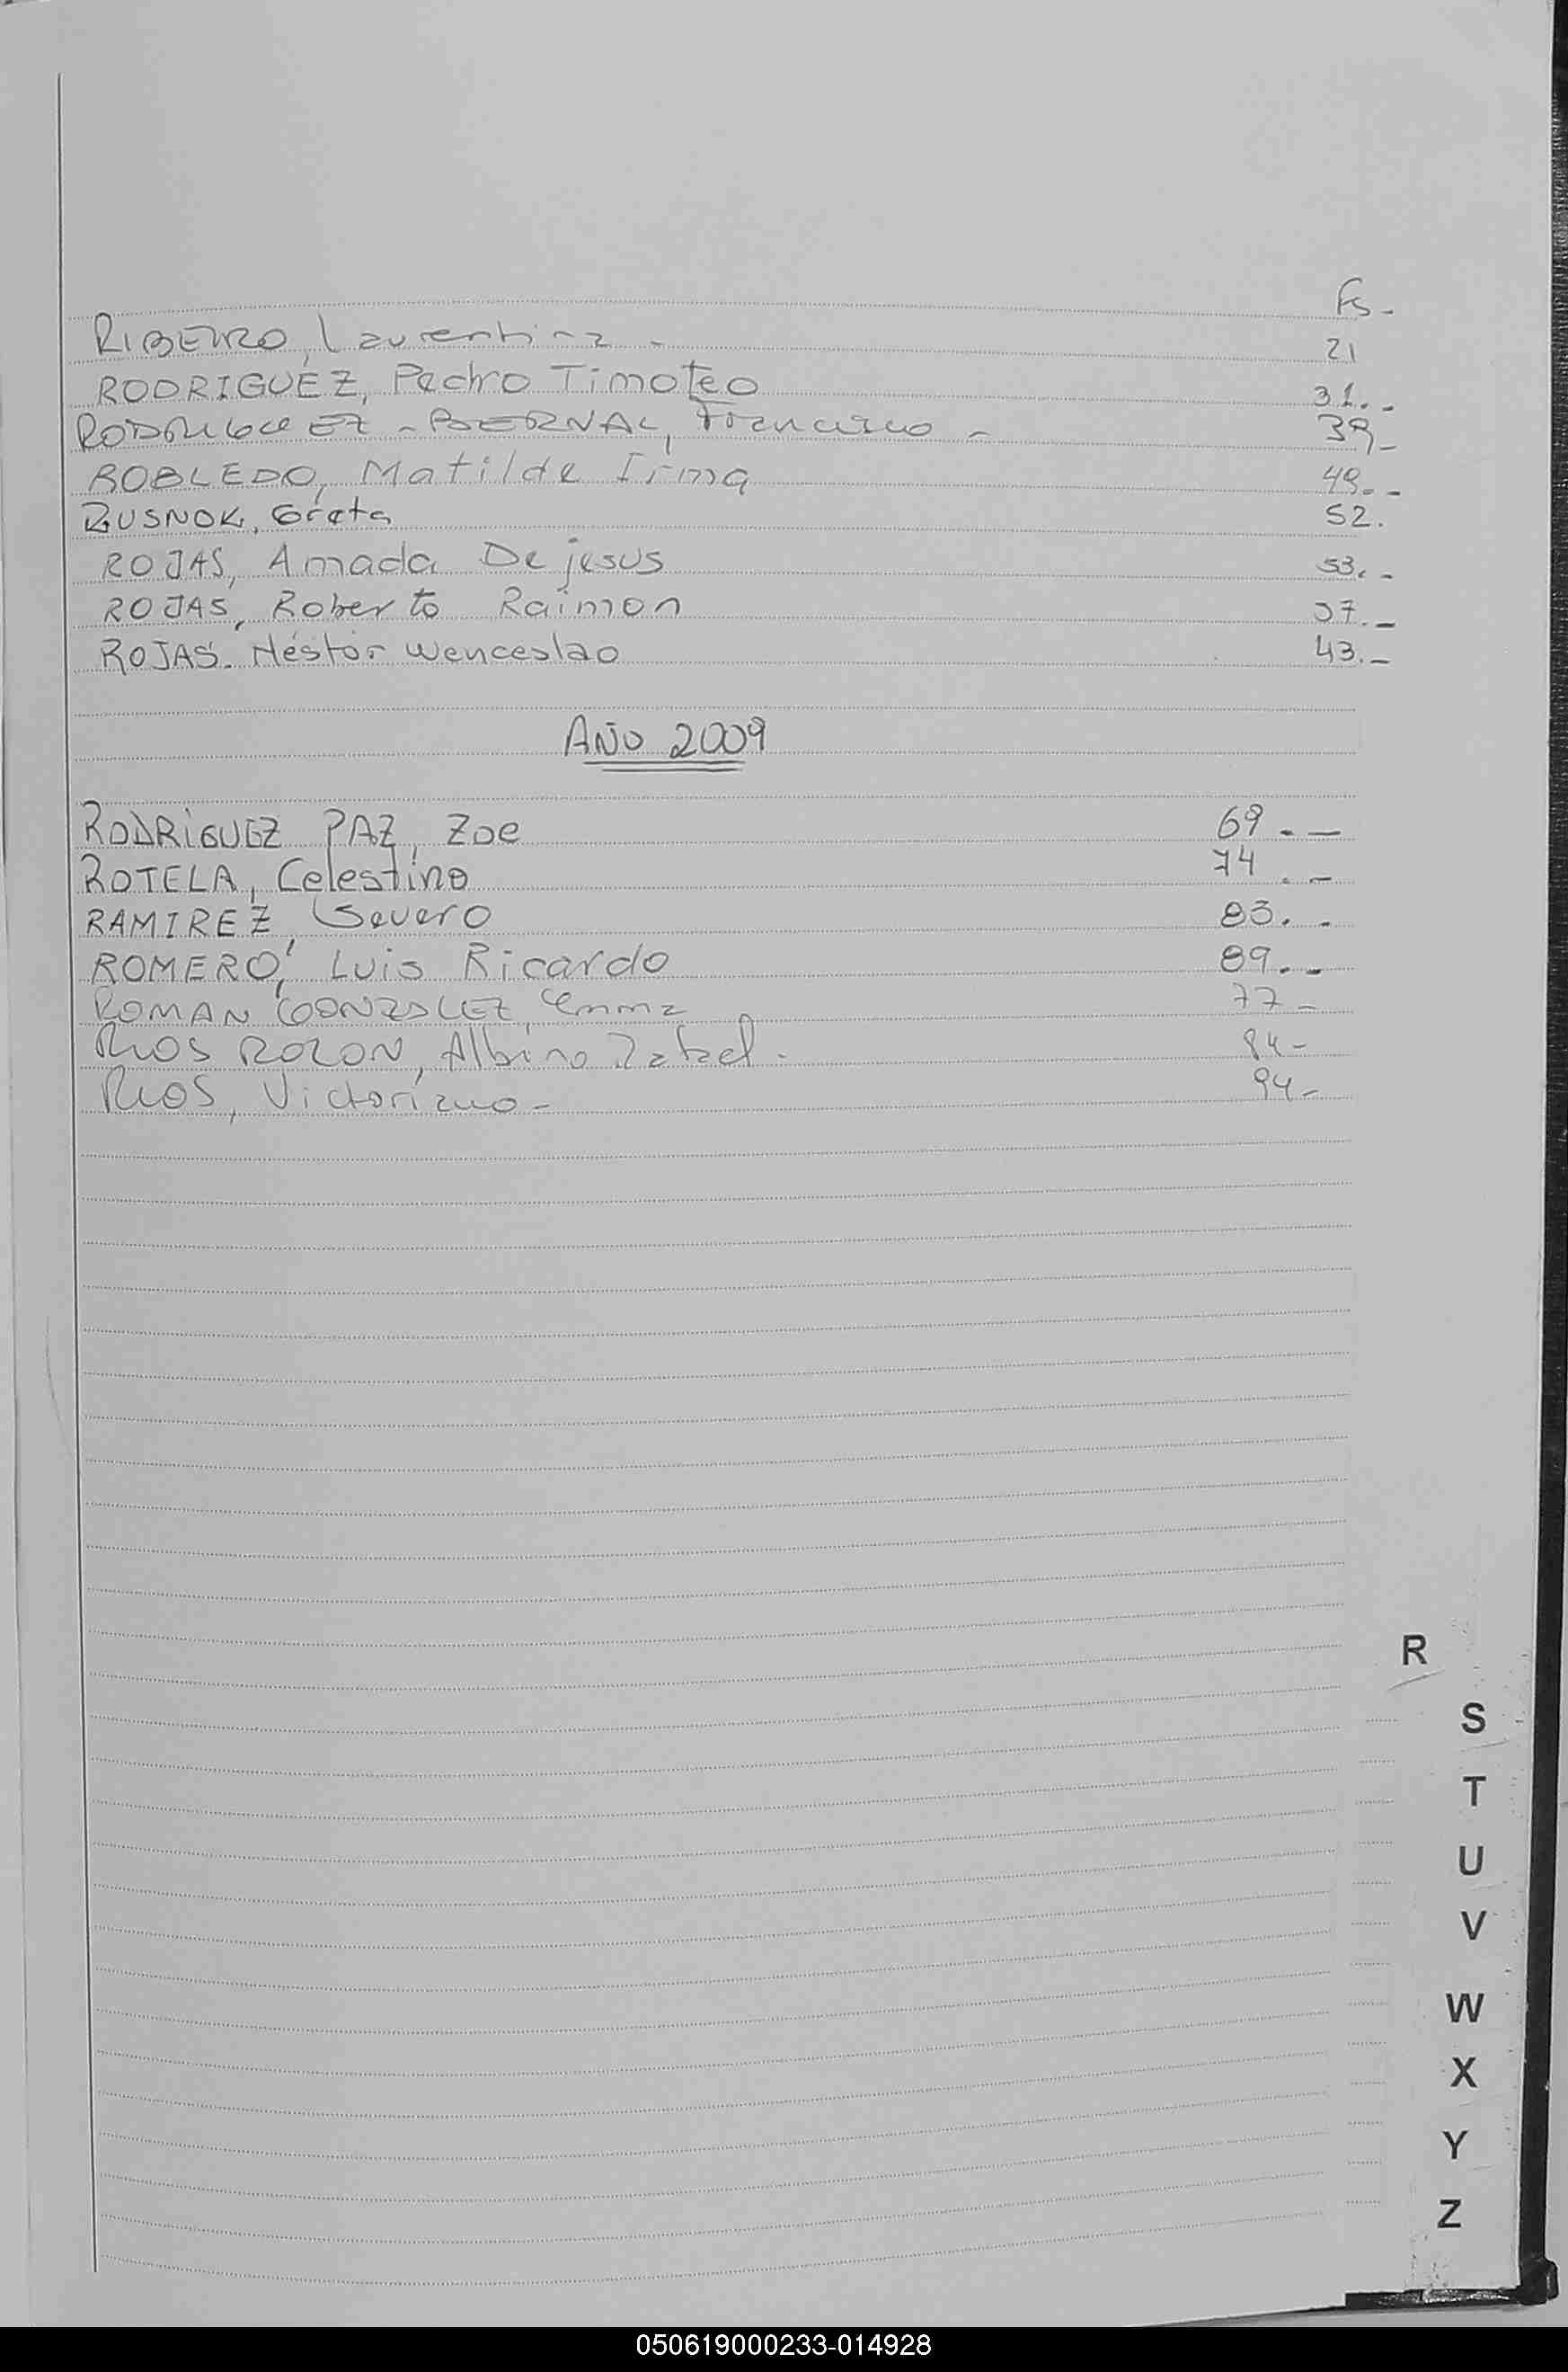 Fs-
RIBEIRO, Laurentina - 21
RODRIGUEZ, Pedro Timoteo 31.-
RODRIGUEZ - BERNAL, Francisco - 39-
ROBLEDO, Matilde Irma 49.-
RUSNOK, Greta 52.
ROJAS, Amada De jesus 53.-
ROJAS, Roberto Raimon 37.-
ROJAS. Néstor Wenceslao 43.-
AÑO 2009
RODRIGUEZ PAZ, Zoe 69.-
ROTELA, Celestino 74.-
RAMIREZ, Severo 83.-
ROMERO, Luis Ricardo 89.-
ROMAN GONZALEZ, Emma 77-
RIOS ROLON, Albino Rafael. 84-
RIOS, Victoriano- 94-
R
S
T
U
V
W
X
Y
Z
050619000233-014928